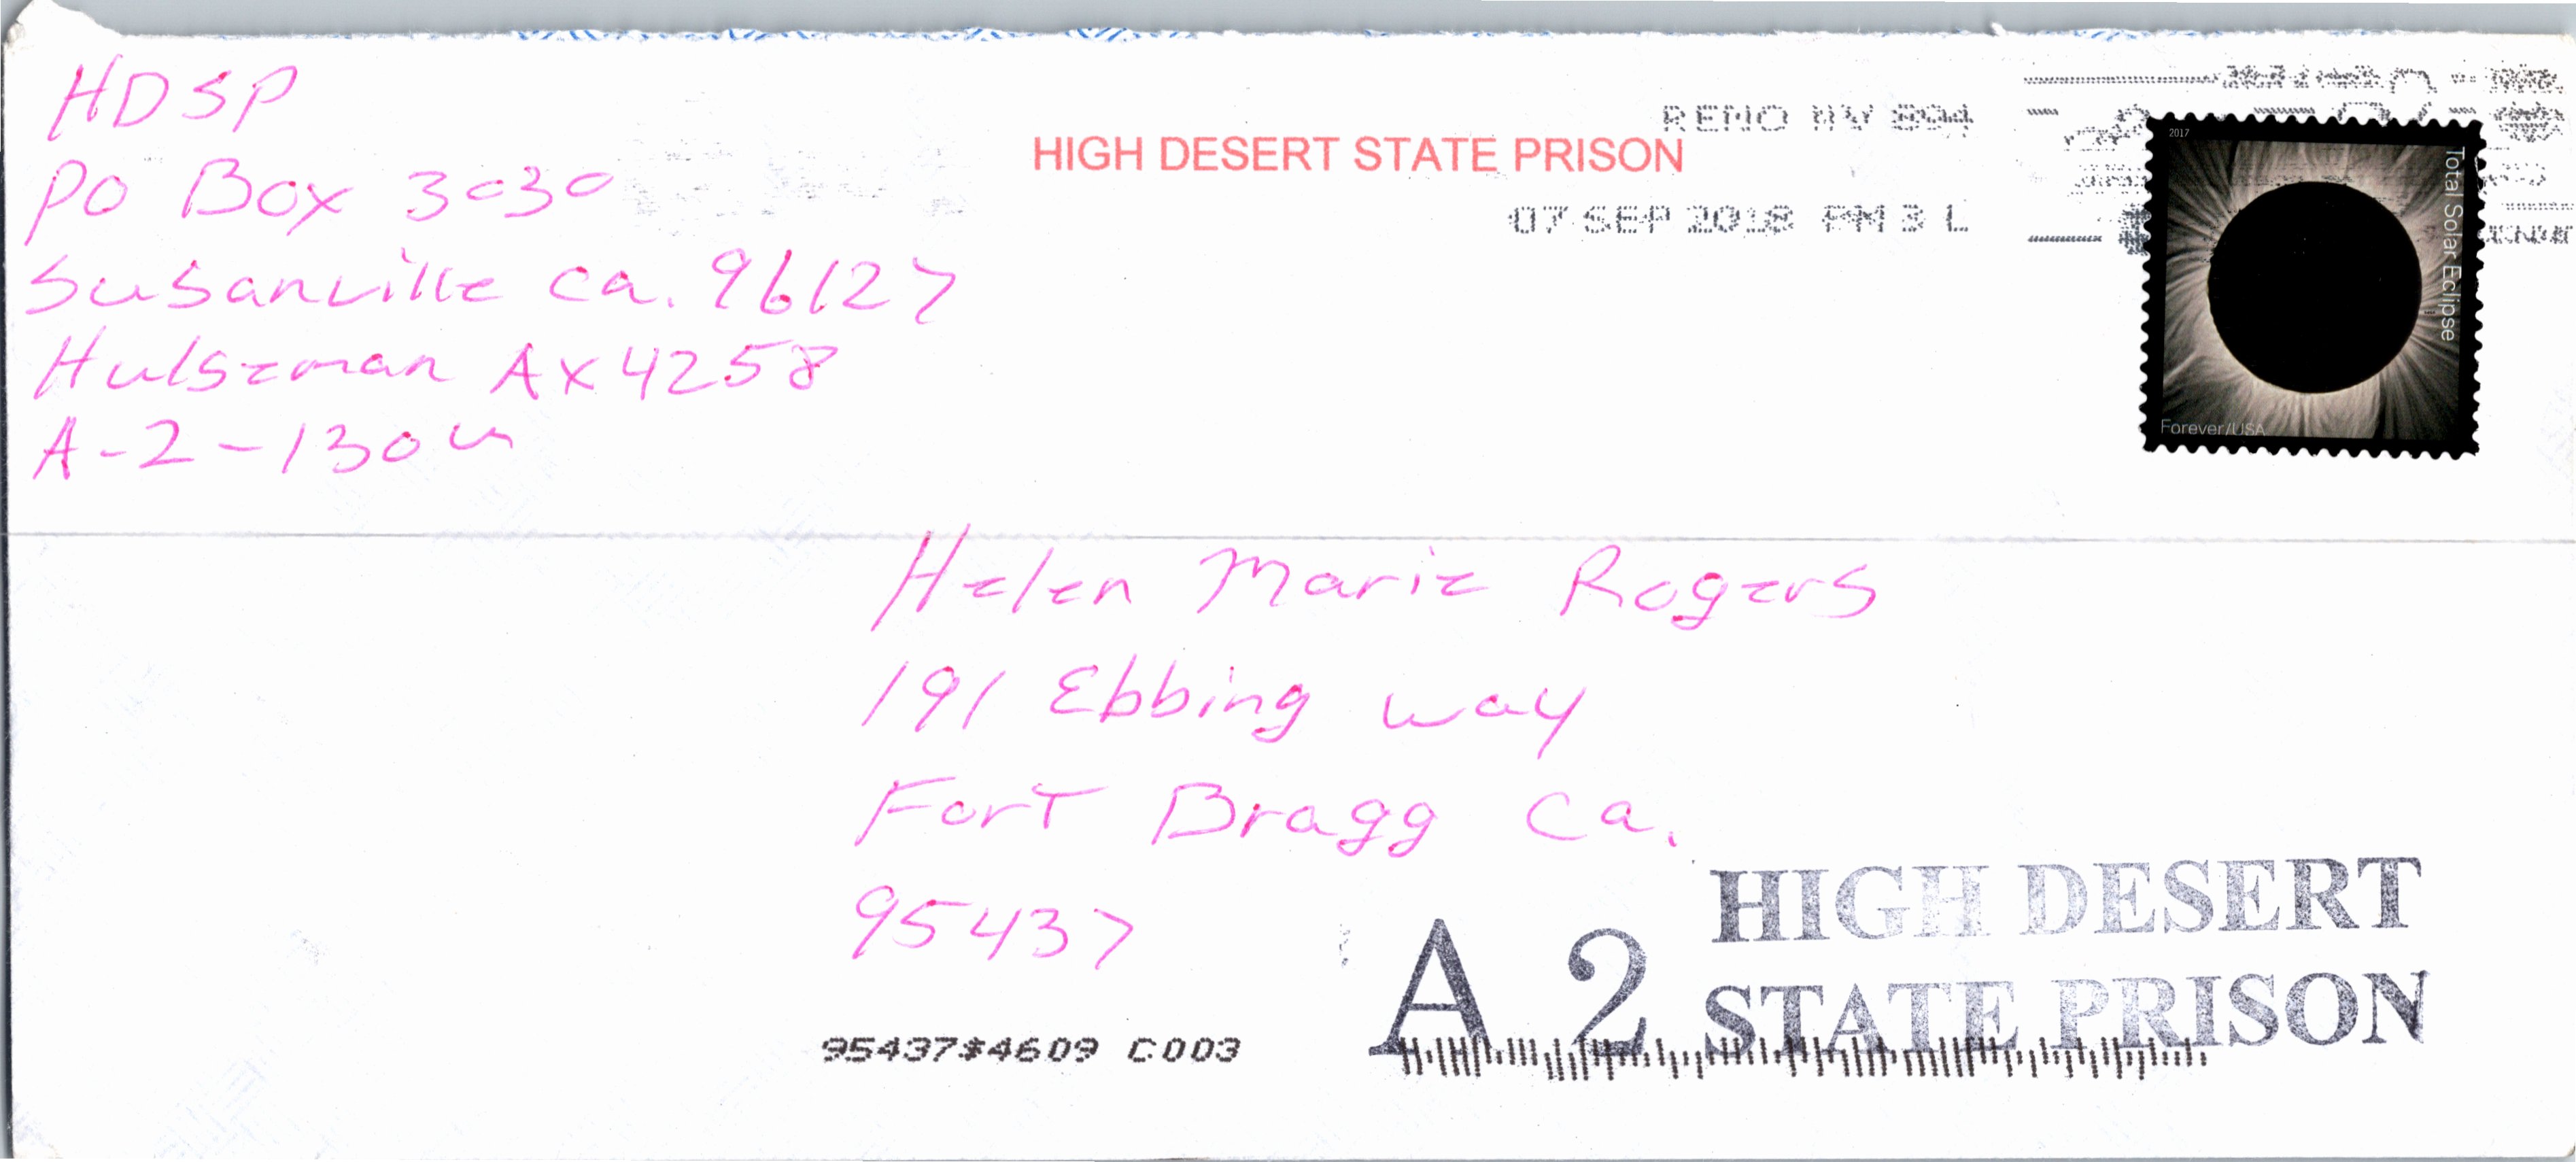 HDSP
PO Box 3030
Susanville ca. 96127
Hulseman AX4258
A-2-130u
HIGH DESERT STATE PRISON
RENO NV 894
07 SEP 2018 PM 3 L
2017
Total Solar Eclipse
Forever/USA
Helen Marie Rogers
191 Ebbing way
Fort Bragg Ca.
95437
A 2 HIGH DESERT
STATE PRISON
95437*4609 C003